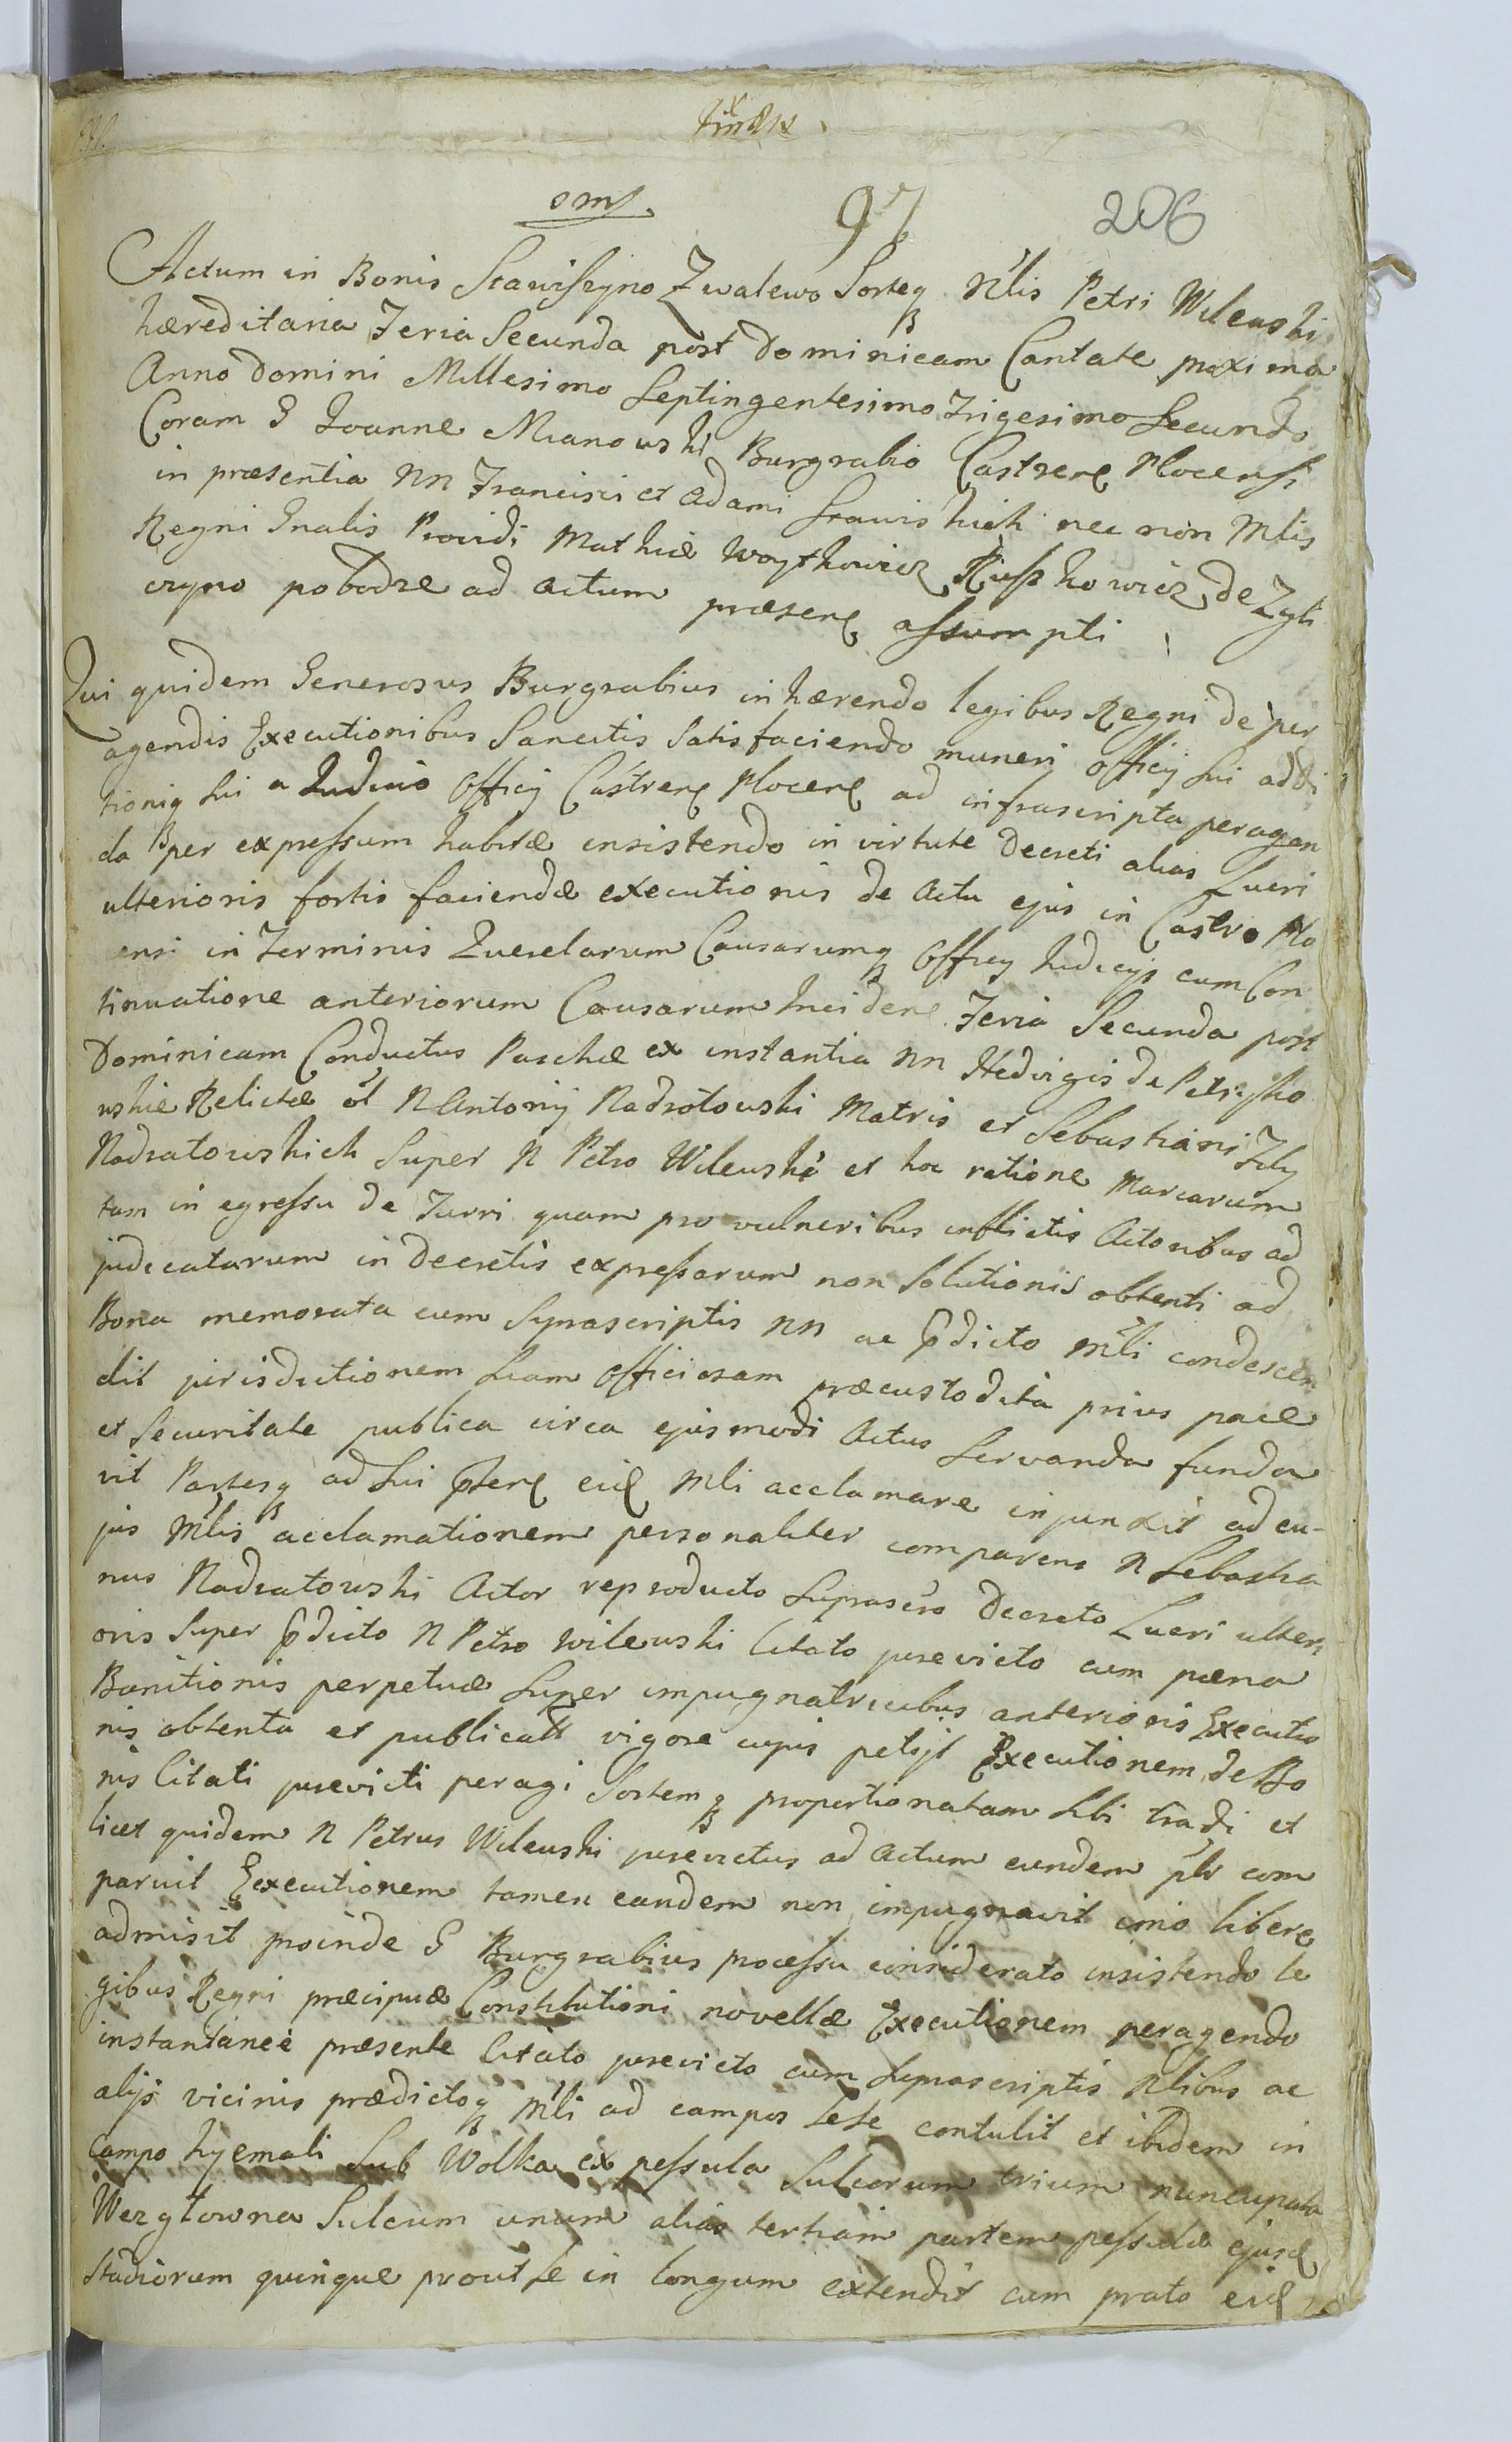 97
206
Actum in Bonis Stawiszyno Zwalewo Sorteq Nlis Petri Wilewski
hæreditaria Feria Secunda post Dominicam Cantate proxima
Anno Domini Millesimo Septingentesimo Trigesimo Secundo
Coram G Joanne Mianowski Burgrabio Castren Plocensi
in præsentia NN Francisci et Adami Stawiskich nec non Mlis
Regni Gnalis Providi Mathiæ Woythowicz Ruszkowicz de Zyli
czyno pobodze ad actum præsen assumpti
Qui quidem Generosus Burgrabius inhærendo legibus Regni de per
agendis Executionibus Sancitis Satisfaciendo muneri officij sui addi
tioniq sui a Judicio Officij Castren Plocen ad infrascripta peragen
da per expressum habitæ insistendo in virtute Decreti alias Lucri
ulterioris fortis faciendæ executionis de Actu ejus in Castro Plo
censi in Terminis Querelarum Causarumq Officij Judicijs cum Con
tinuatione anteriorum Causarum Inciden Feria Secunda post
Dominicam Conductus Paschæ ex instantia NN Hedvigis de
wskie Relictæ ol N Antonij Nadratowski Matris et Sebastiani Filij
Nadratowskich Super N Petro Wilewski et hoc ratione Marcarum
tam in egressu de Turri quam pro vulneribus inflictis Actoribus ad
judicatarum in Decretis expressarum non Solutionis obtenti ad
Bona memorata cum Suprascriptis NN ac pdicto Mli condescen
dit jurisdictionem Suam Officiosam præcustodita prius pace
et Securitate publica circa ejusmodi Actus Servanda funda
vit Partesq ad Sui pten eid Mli acclamare injunxit ad cu-
jus Mlis acclamationem personaliter comparens N Sebastia
nus Nadratowski Actor reproducto Suprascro Decreto Lucri ulteri
oris Super pdicto N Petro Wilewski Citato jurevicto cum pæna
Banitionis perpetuæ Super impugnatricibus anterioris Executio
nis obtenta et publicatt vigore cujus petijt Executionem de Bo
nis Citati jurevicti peragi Sortemq proportionatam Sibi tradi et
licet quidem N Petrus Wilewski jurevictus ad Actum eundem plr com
paruit Executionem tamen eandem non impugnavit imo libere
admisit proinde G Burgrabius processu considerato insistendo le
gibus Regni præcipuæ Constitutioni novellæ Executionem peragendo
instantanee præsente Citato jurevicto cum Suprascriptis Nlibus ac
alijs vicinis prædictoq Mli ad campos Sese contulit et ibidem in
Campo hyemali Sub Wolka ex pessula Sulcorum trium nuncupata
Wezglowna Sulcum unum alias tertiam partem pessulæ ejusd
Stadiorum quinque prout se in longum extendit cum prato eid